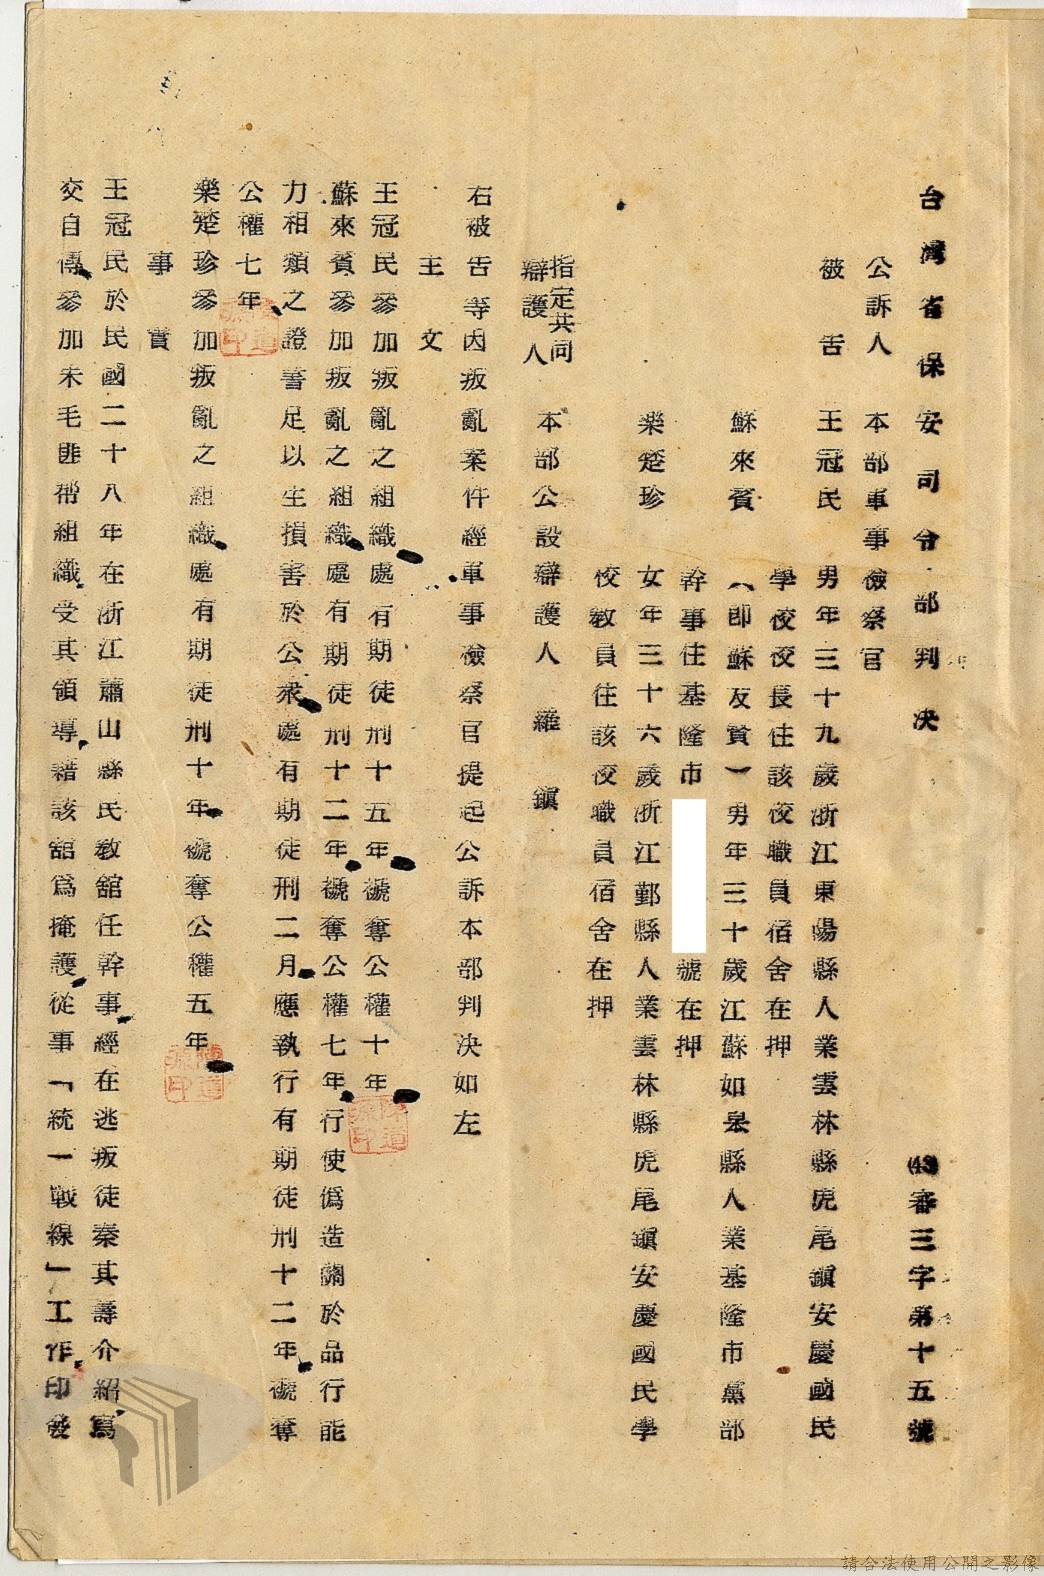 台灣省保安司令部判决
(43)審三字第十五號
公訴人 本部軍事檢察官
被告 王冠民 男年三十九歲浙江東陽縣人業雲林縣虎尾鎮安慶國民
學校校長住該校職員宿舍在押
蘇來賓 (即蘇友賓)男年三十歲江蘇如皋縣人業基隆市黨部
幹事住基隆市 號在押
樂楚珍 女年三十六歲浙江鄞縣人業雲林縣虎尾鎮安慶國民學
校教員住該校職員宿舍在押
指定共同
辯護人 本部公設辯護人 羅鎮
右被告等因叛亂案件經軍事檢察官提起公訴本部判决如左
主文
王冠民參加叛亂之組織處有期徒刑十五年褫奪公權十年
蘇來賓參加叛亂之組織處有期徒刑十二年褫奪公權七年行使僞造關於品行能
力相類之證書足以生損害於公衆處有期徒刑二月應執行有期徒刑十二年褫奪
公權七年
樂楚珍參加叛亂之組織處有期徒刑十年褫奪公權五年
事實
王冠民於民國二十八年在浙江蕭山縣民敎舘任幹事經在逃叛徒秦其壽介紹寫
交自傳參加朱毛匪幫組織受其領導藉該舘爲掩護從事「統一戰線」工作印發
請合法使用公開之影像